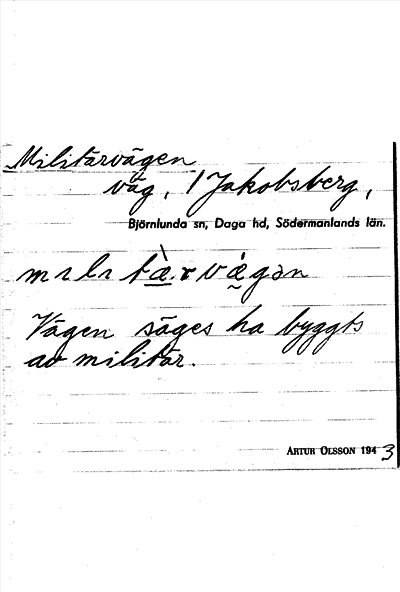 Militärvägen
väg, 1 Jakobsberg,
Björnlunda sn, Daga hd, Södermanlands län.
mılıtæ̀.rvǽgən
Vägen säges ha byggts
av militär.
ARTUR OLSSON 1943